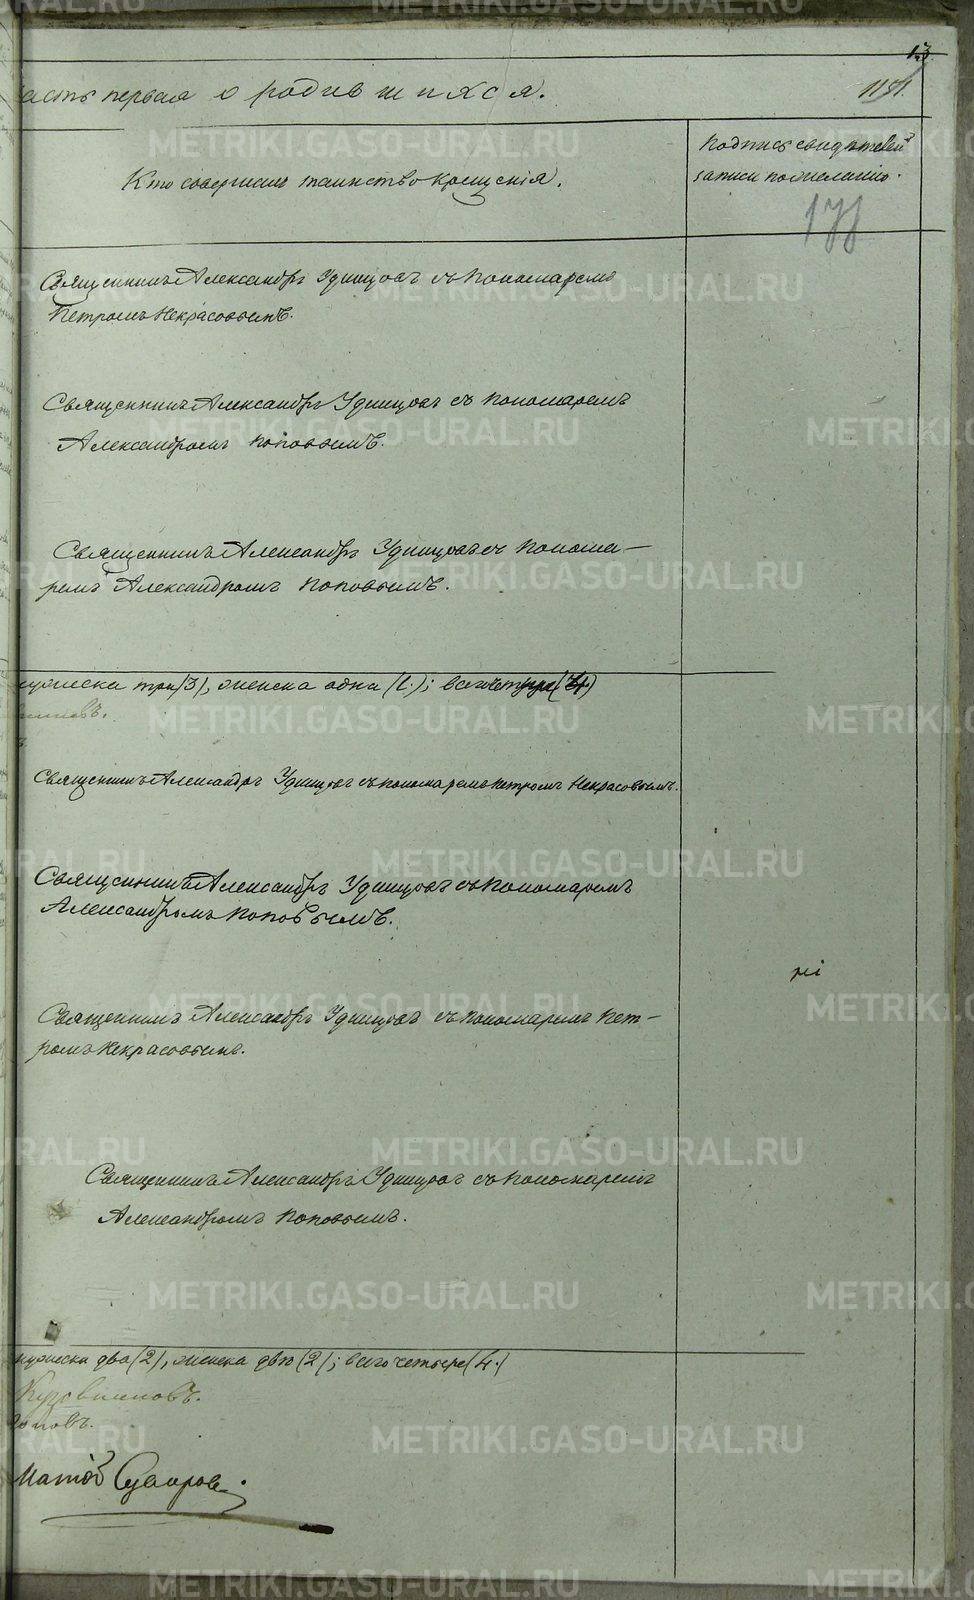 13
асть первая о родившихся.
Кто совершалъ таинство крещенія.
Подпись свидѣтелей
записи по желанію.
177
Священникъ Александръ Удинцовъ съ пономаремъ
Петромъ Некрасовымъ.
Священникъ Александръ Удинцовъ съ пономаремъ
Александромъ Поповымъ.
Священникъ Александръ Удинцовъ съ понома-
ремъ Александромъ Поповымъ.
мужеска три (3), женска одна (1.); всего четыре (4.)
Священникъ Александръ Удинцовъ съ пономаремъ Петромъ Некрасовымъ.
Священникъ Александръ Удинцовъ съ пономаремъ
Александромъ Поповымъ.
Священникъ Александръ Удинцовъ съ пономаремъ Пет-
ромъ Некрасовымъ.
Священникъ Александръ Удинцовъ съ пономаремъ
Александромъ Поповымъ.
мужеска два (2), женска двѣ (2); всего четыре (4.)
оповъ.
Суворовъ.
METRIKI.GASO-URAL.RU